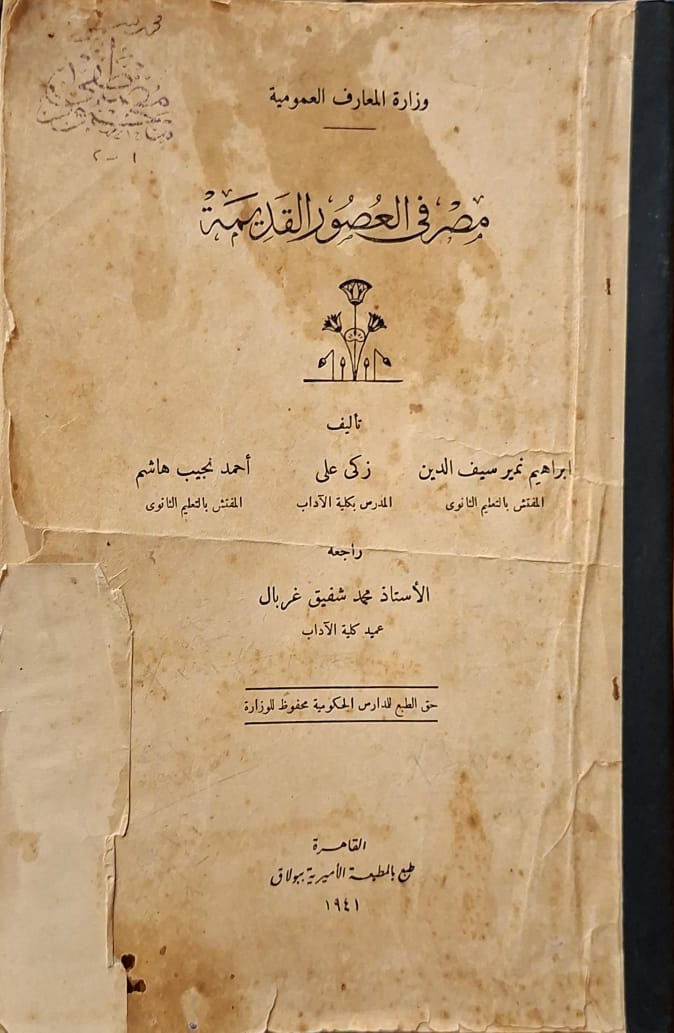 وزارة المعارف العمومية
مصر فى العصور القديمة
تأليف
ابراهيم نمير سيف الدين زكى على أحمد نجيب هاشم
المفتش بالتعليم الثانوى المدرس بكلية الآداب المفتش بالتعليم الثانوى
راجعه
الأستاذ محمد شفيق غربال
عميد كلية الآداب
حق الطبع للدارس الحكومية محفوظ للوزارة
القاهرة
طبع بالمطبعة الأميرية ببولاق
١٩٤١